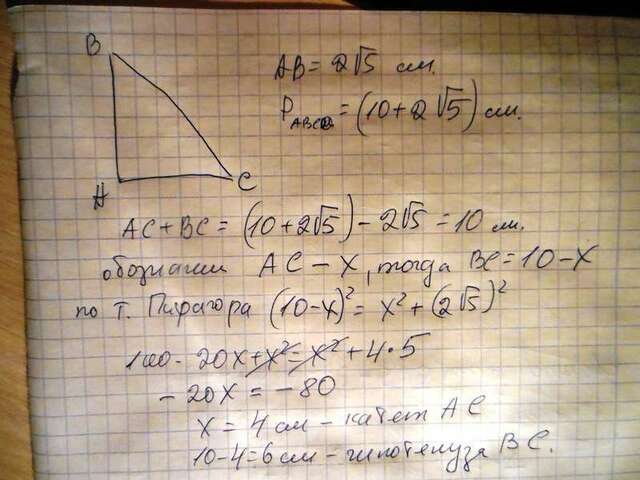 B
AB = 2√5 см.
P ABC = (10 + 2√5) см.
A
C
AC + BC = (10 + 2√5) - 2√5 = 10 см.
обозначим AC - x, тогда BC = 10 - x
по т. Пифагора (10 - x)² = x² + (2√5)²
100 - 20x + x² = x² + 4 · 5
- 20x = - 80
x = 4 см - катет AC
10 - 4 = 6 см - гипотенуза BC.